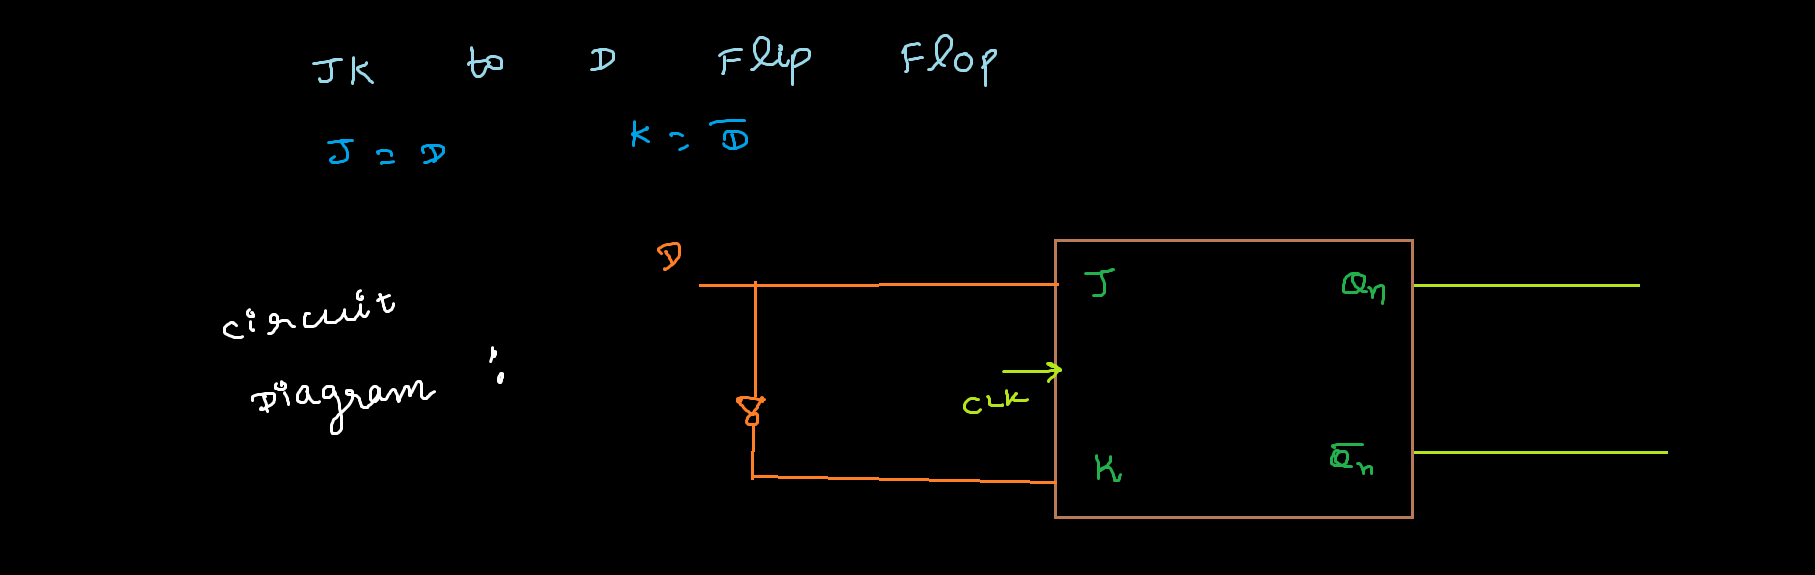 JK to D Flip Flop
J = D K = D̅
D
circuit
Diagram :
J Qn
CLK
K Q̅n